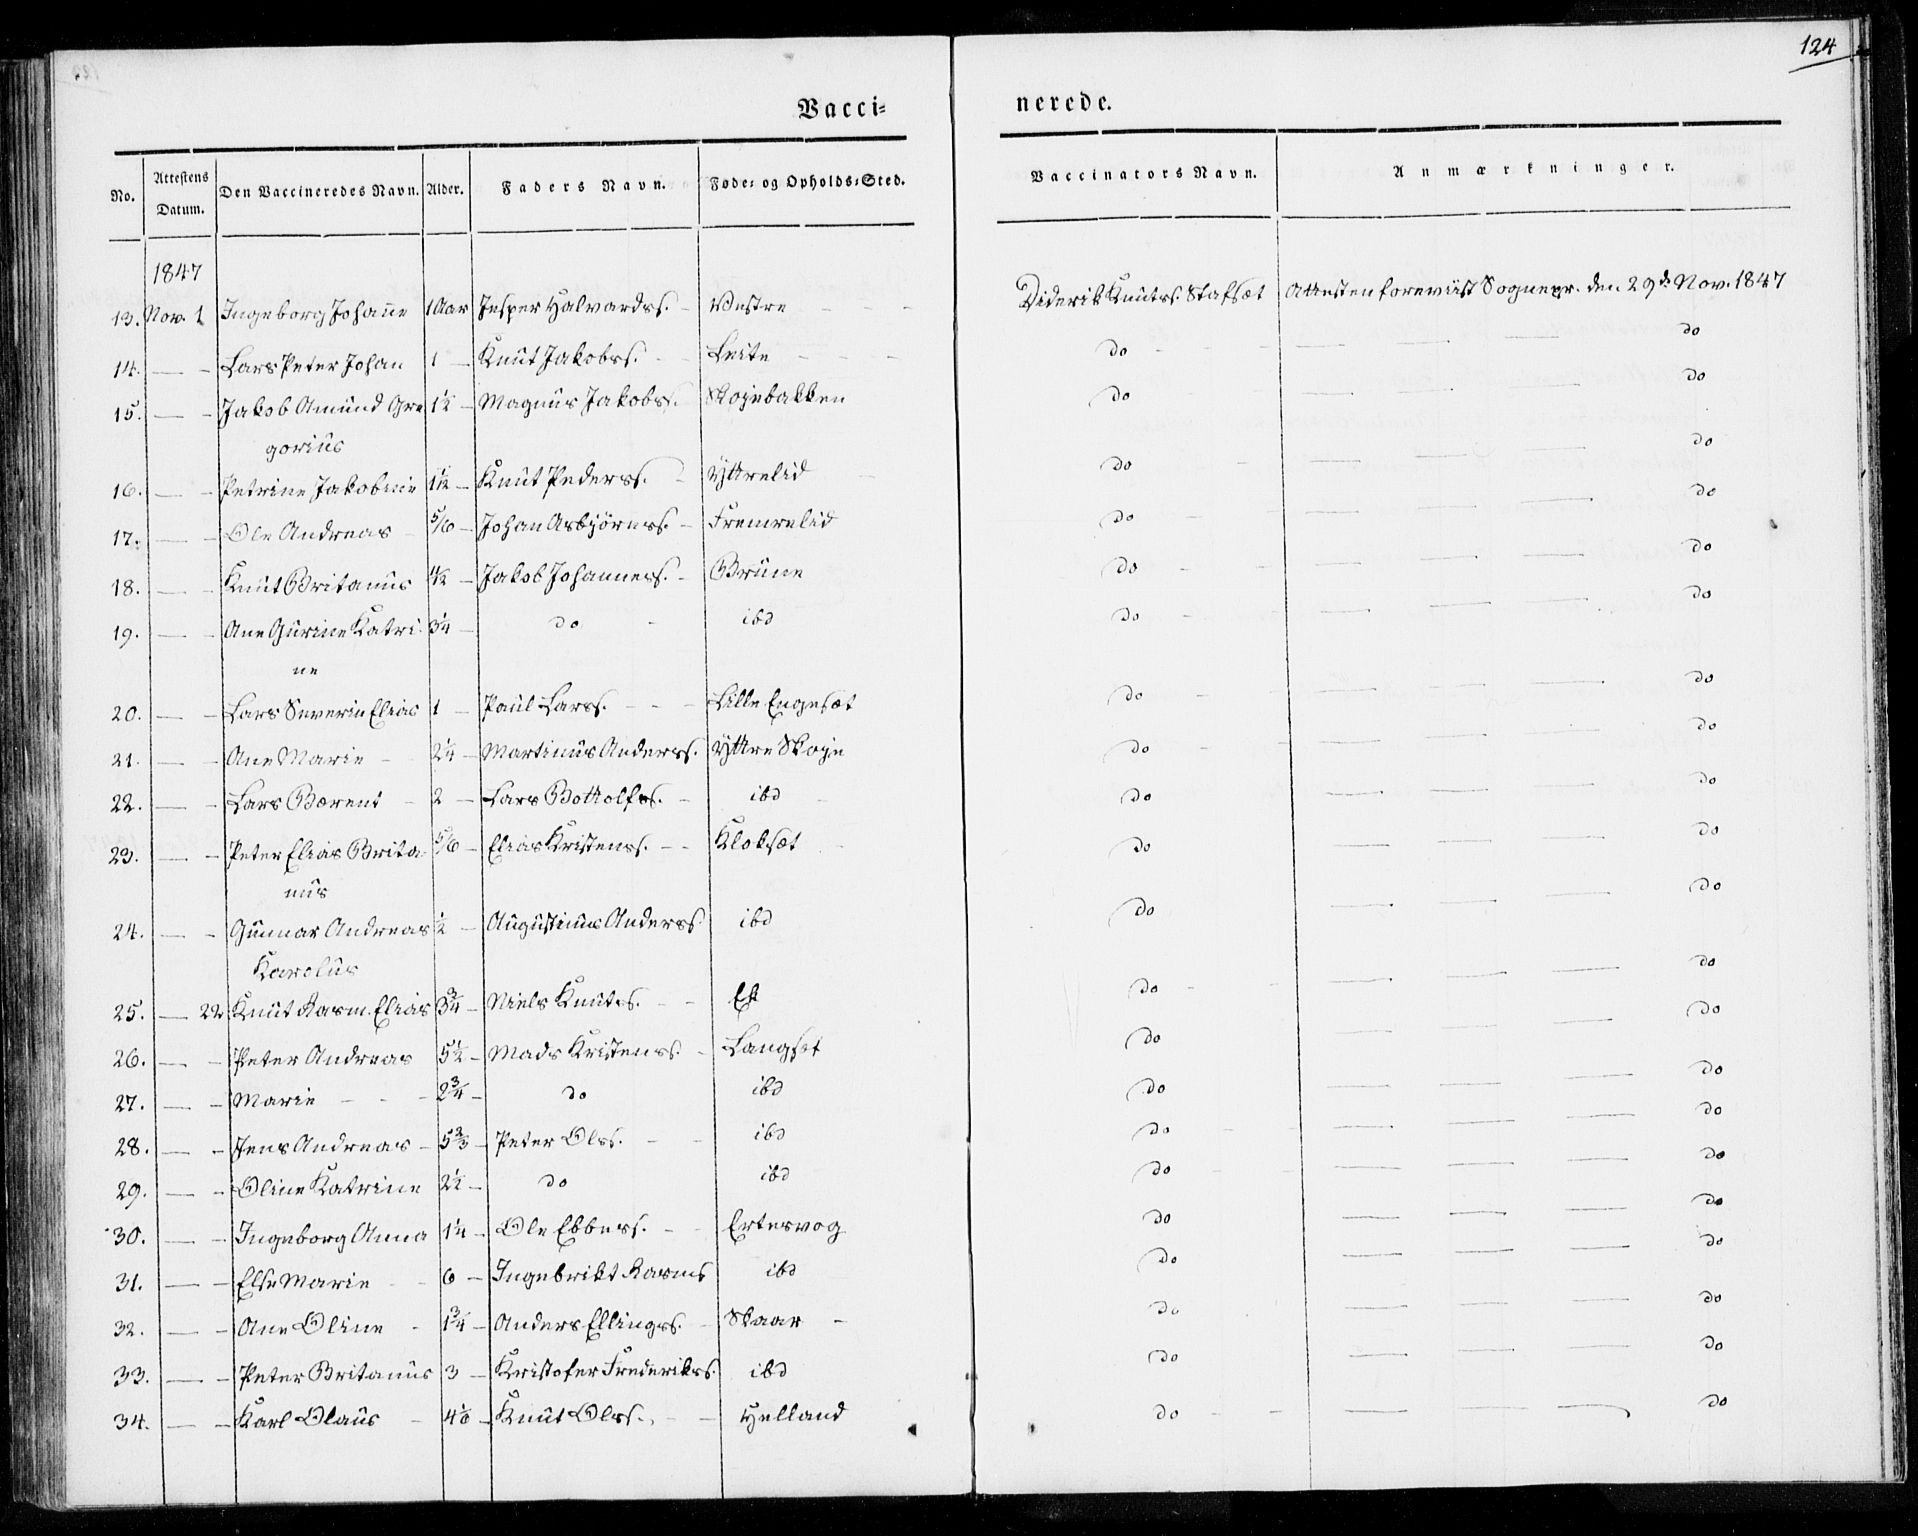 124
Vacci= nerede.
No. Attestens Datum. Den Vaccineredes Navn. Alder. Faders Navn. Føde= og Opholds=Sted. Vaccinators Navn. Anmærkninger.
1847
13. Nov. 1 Ingeborg Johan̄e 1 Aar Jesper Halvards. - Vestre - - Diderik Knuts. Stafset Attesten foreviist Sognepr. den 29de Nov. 1847
14. — - Lars Peter Johan 1 — Knut Jakobs. - - Leite - - - do - - — — — do
15. — - Jakob Amund Gre 1½ - Magnus Jakobs. Skojebakken do - — — — do
gorius
16. — - Petrine Jakobine 1½ - Knut Peders. - Yttrelid - do - — — — do
17. — - Ole Andreas - 5/6 - Johan Asbjörns. - Fremrelid do - — — — do
18. — - Knut Britanus Jakob Johanness. - Brune do - - — — — do
19. — - Ane Gurine Katri 3¼ - do - ibd do - — — — do
ne
20. — - Lars Severin Elias 1 - Paul Lars. - - - Lille Engeset do - - — — — do
21. — - Ane Marie - 2¼ - Martinus Anders. Yttre Skoje do - - — — — do
22. — - Lars Bærent - 2 - Lars Bottolfs. - ibd - do — — — do
23. — - Peter Elias Brita 5/6 - Elias Kristens. - - Kloksæt - do — — — do
nus
24. — - Gunnar Andreas ½ - Augustinus Anders. ibd do — — — do
Karolus
25. — 22 Knut Rasm. Elias 3¾ - Niels Knuts. - - Ek do - - — — — do
26. — - Peter Andreas 5½ - Mads Kristens. - Langset do — — — do
27. — - Marie - - - 2¾ - do ibd do — — — do
28. — - Jens Andreas - 5⅔ - Peter Ols. - - ibd do - - — — — do
29. — - Oline Katrine 2½ - do ibd do - - — — — do
30. — - Ingeborg Anna 1¼ - Ole Ebbes. - - Ertesvog do — — — do
31. — - Else Marie - - 6 - Ingebrikt Rasms ibd do — — — do
32. — - Ane Oline - 1¾ - Anders Ellings. - Skaar - do — — — do
33. — - Peter Britanus 3 - Kristofer Frederiks. ibd do — — — do
34. — - Karl Olaus - Knut Ols. - - Helland do - - — — — do